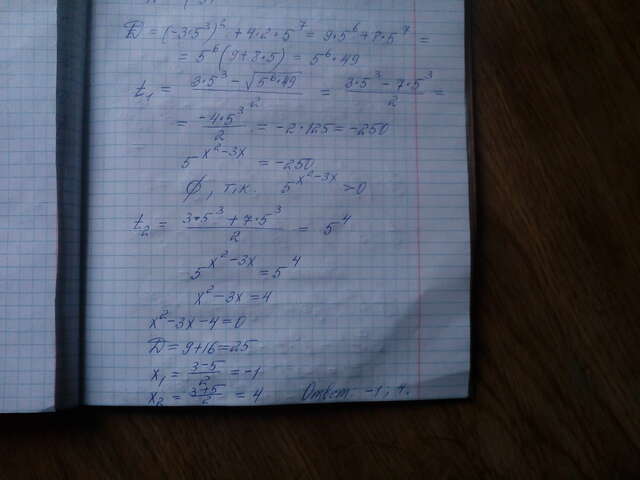 D = (-3·5³)² + 4·2·5⁷ = 9·5⁶ + 8·5⁷ =
= 5⁶(9+8·5) = 5⁶·49
t₁ = (3·5³ - √(5⁶·49))/2 = (3·5³ - 7·5³)/2 =
= (-4·5³)/2 = -2·125 = -250
5^(x²-3x) = -250
∅, т.к. 5^(x²-3x) > 0
t₂ = (3·5³ + 7·5³)/2 = 5⁴
5^(x²-3x) = 5⁴
x²-3x = 4
x²-3x-4=0
D = 9+16=25
x₁ = (3-5)/2 = -1
x₂ = (3+5)/2 = 4 Ответ: -1; 4.